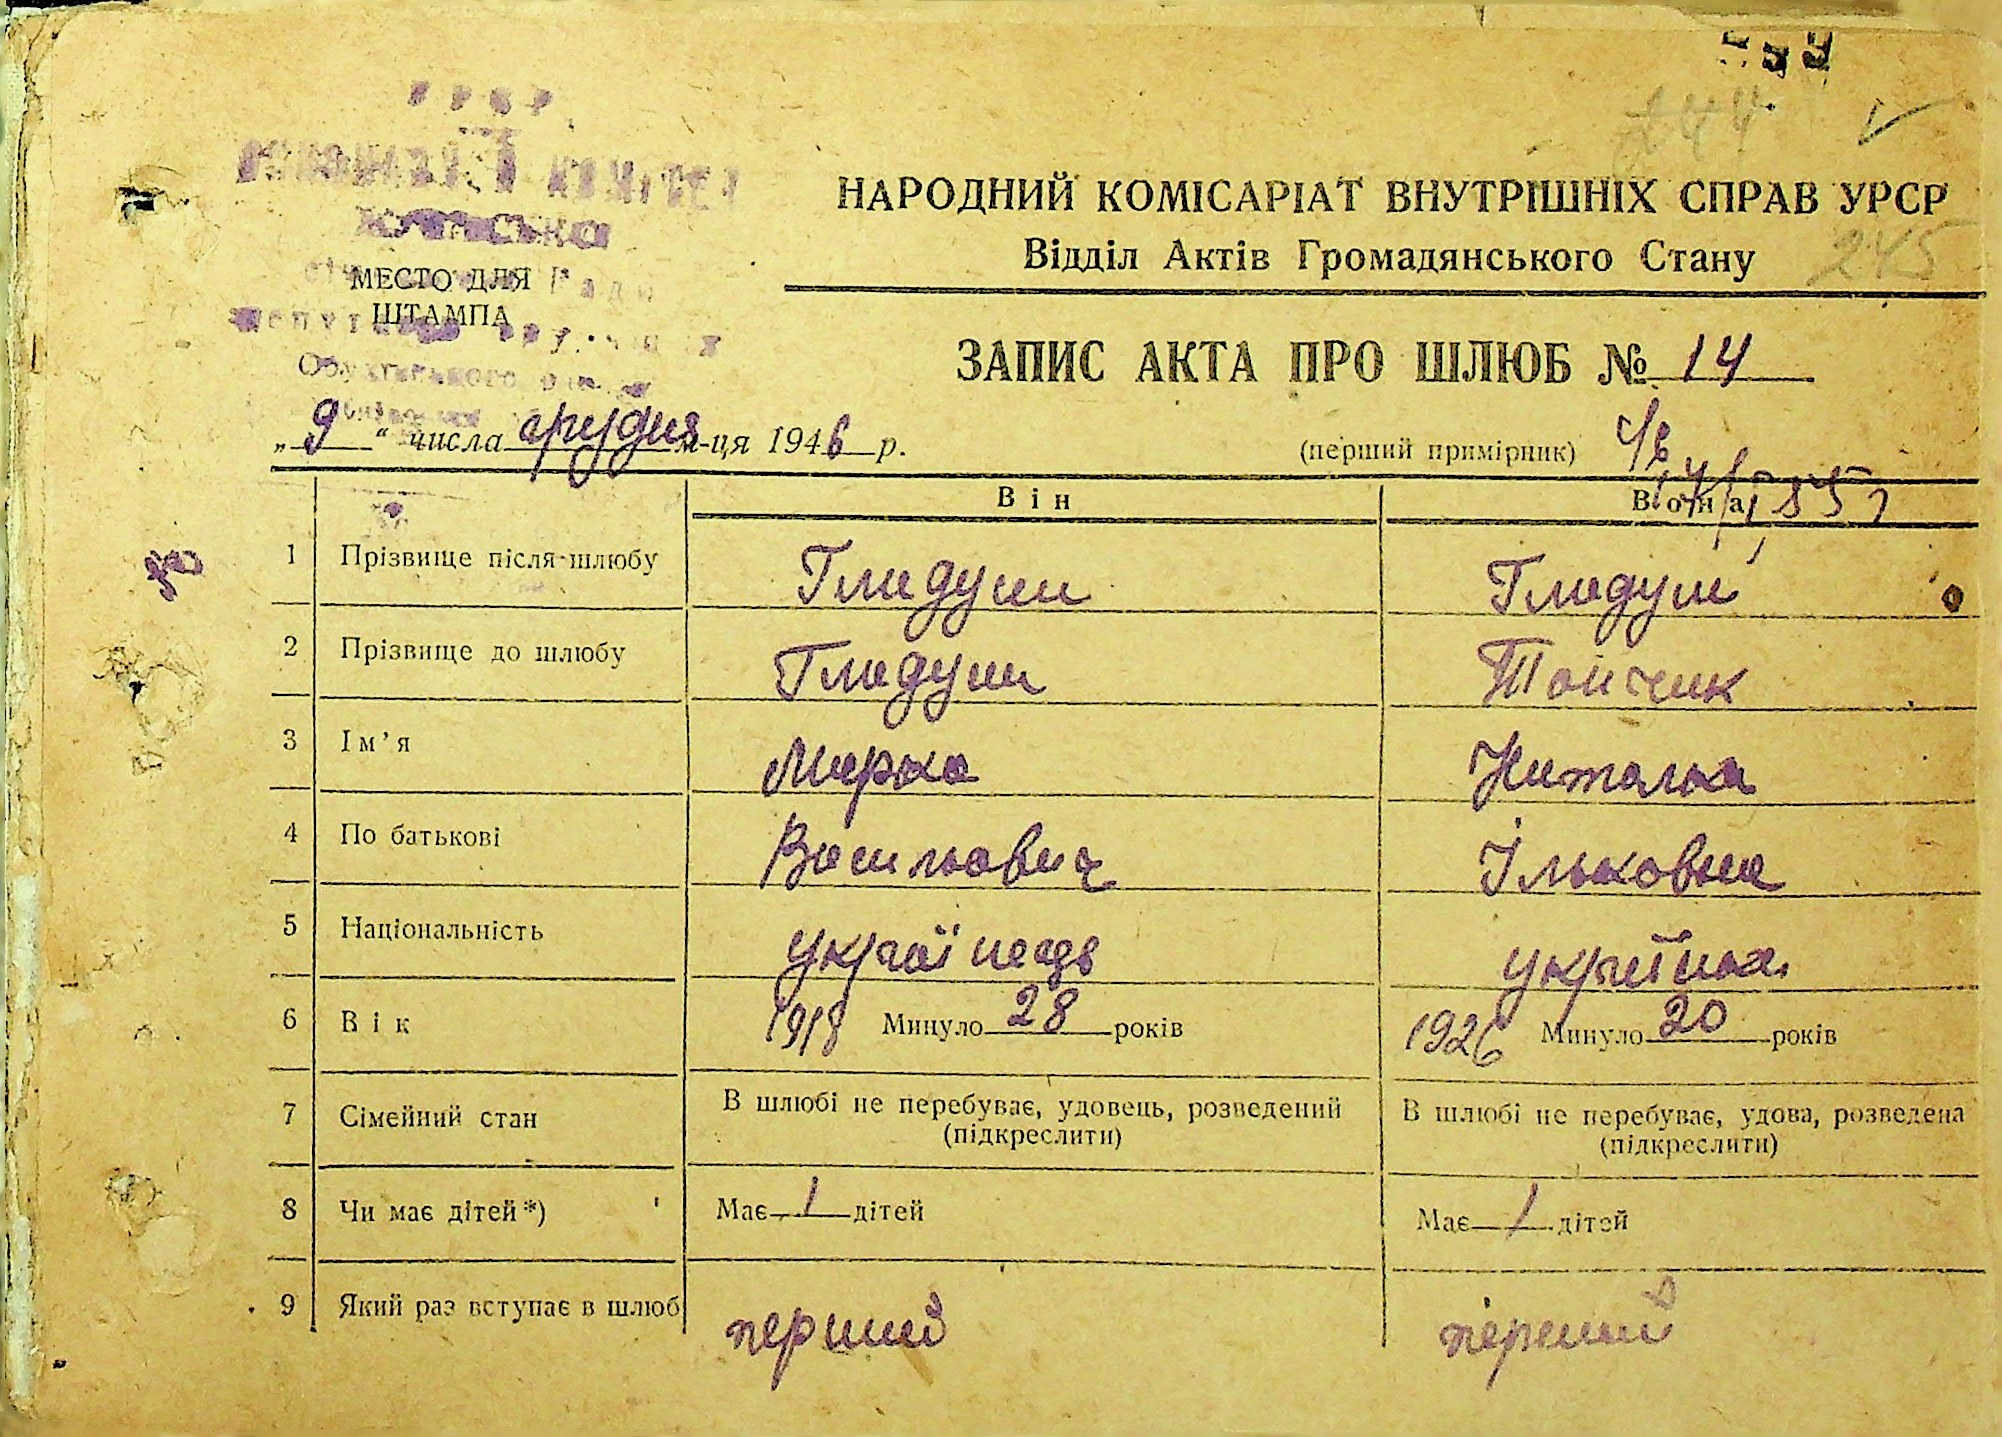 УРСР
КОМІТЕТ
НАРОДНИЙ КОМІСАРІАТ ВНУТРІШНІХ СПРАВ УРСР
Відділ Актів Громадянського Стану
245
МЕСТО ДЛЯ
ШТАМПА
Обухівського
ЗАПИС АКТА ПРО ШЛЮБ № 14
„ 9 “ числа грудня м-ця 1946 р.
(перший примірник)
Він Вона
1 Прізвище після шлюбу Гладуш Гладуш
2 Прізвище до шлюбу Гладуш Тойчик
3 Ім’я Марко Наталка
4 По батькові Васильович Ільковна
5 Національність українець українка
6 Вік 1918 Минуло 28 років 1926 Минуло 20 років
7 Сімейний стан В шлюбі не перебуває, удовець, розведений (підкреслити) В шлюбі не перебуває, удова, розведена (підкреслити)
8 Чи має дітей*) Має / дітей Має / дітей
9 Який раз вступає в шлюб перший перший